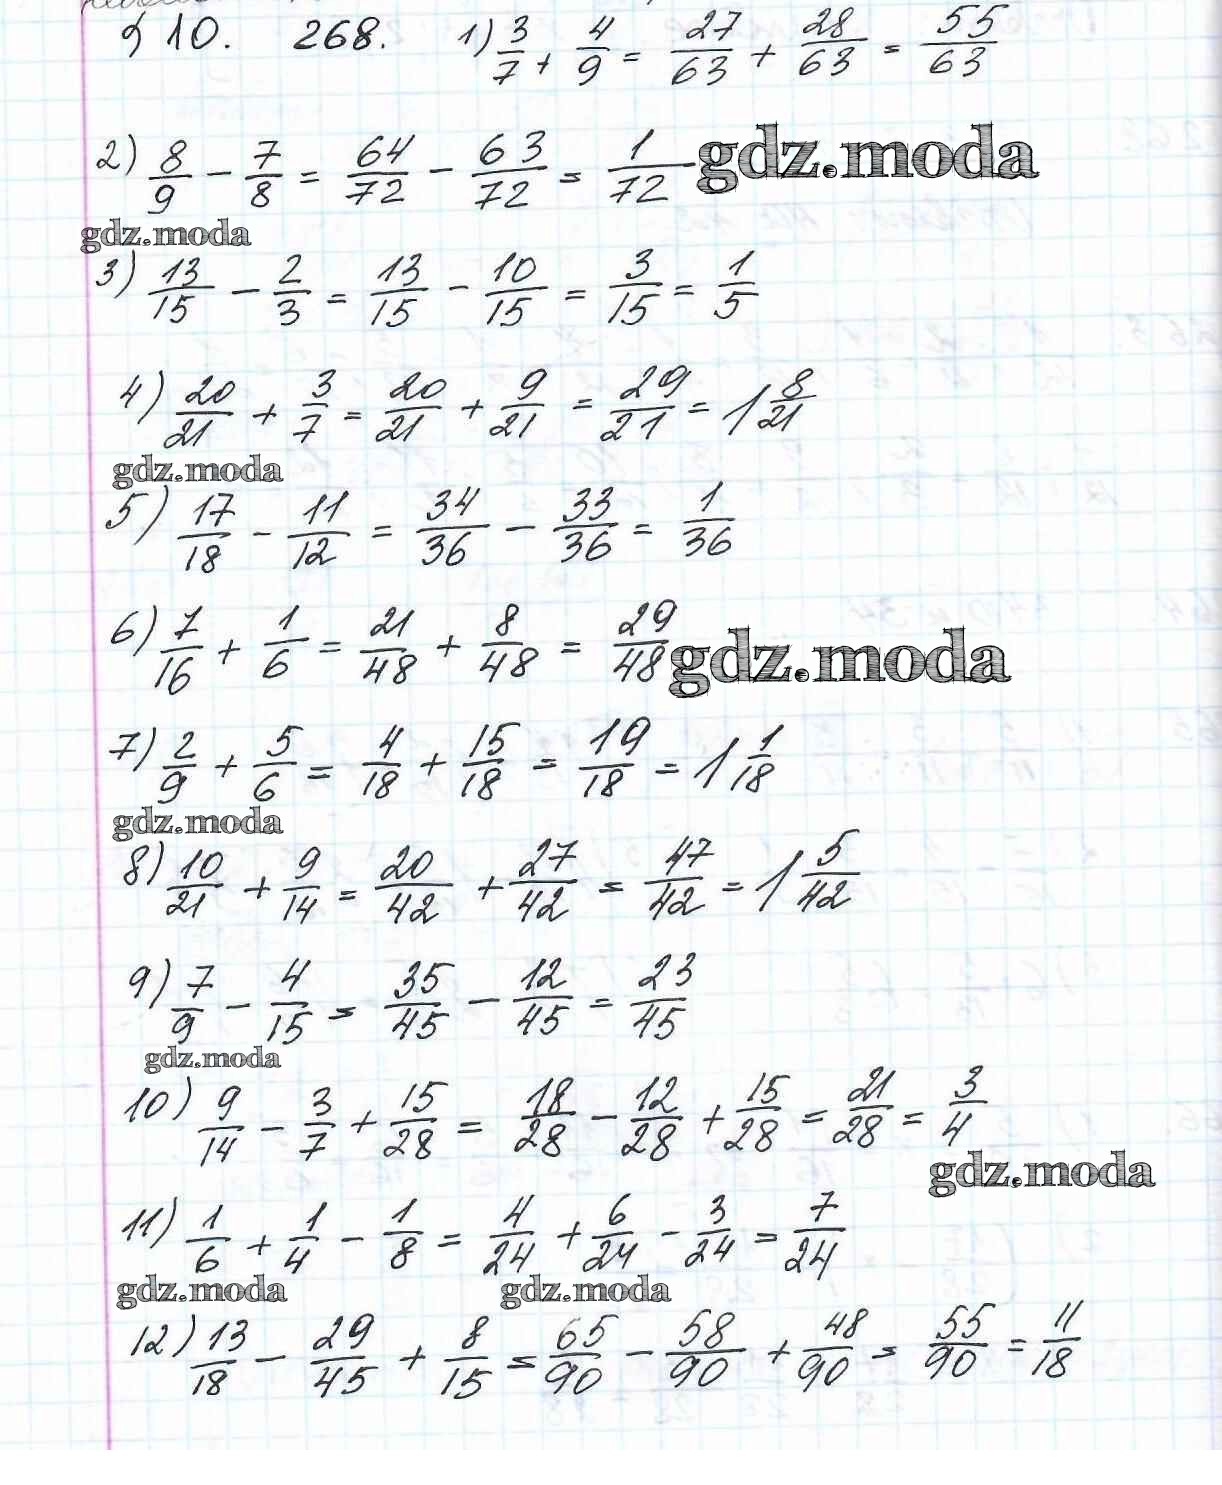 § 10. 268. 1) 3/7 + 4/9 = 27/63 + 28/63 = 55/63
2) 8/9 - 7/8 = 64/72 - 63/72 = 1/72 gdz.moda
gdz.moda
3) 13/15 - 2/3 = 13/15 - 10/15 = 3/15 = 1/5
4) 20/21 + 3/7 = 20/21 + 9/21 = 29/21 = 1 8/21
gdz.moda
5) 17/18 - 11/12 = 34/36 - 33/36 = 1/36
6) 7/16 + 1/6 = 21/48 + 8/48 = 29/48 gdz.moda
7) 2/9 + 5/6 = 4/18 + 15/18 = 19/18 = 1 1/18
gdz.moda
8) 10/21 + 9/14 = 20/42 + 27/42 = 47/42 = 1 5/42
9) 7/9 - 4/15 = 35/45 - 12/45 = 23/45
gdz.moda
10) 9/14 - 3/7 + 15/28 = 18/28 - 12/28 + 15/28 = 21/28 = 3/4
gdz.moda
11) 1/6 + 1/4 - 1/8 = 4/24 + 6/24 - 3/24 = 7/24
gdz.moda gdz.moda
12) 13/18 - 29/45 + 8/15 = 65/90 - 58/90 + 48/90 = 55/90 = 11/18